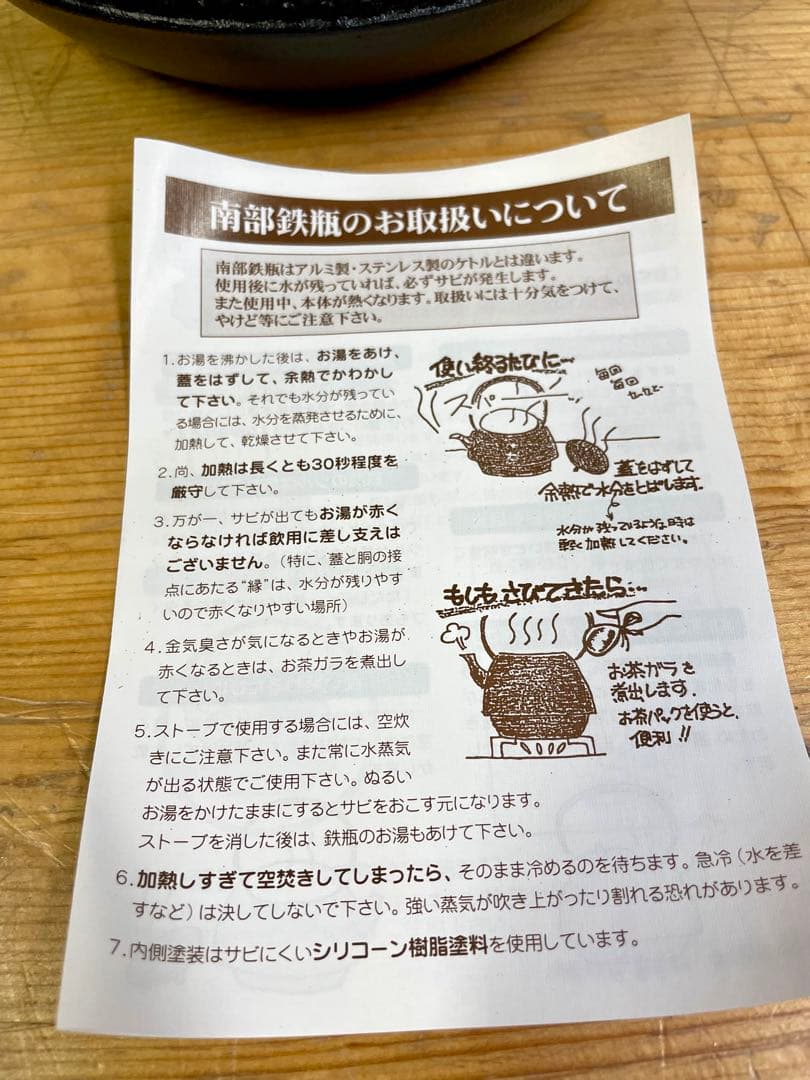 南部鉄瓶のお取扱いについて
南部鉄瓶はアルミ製・ステンレス製のケトルとは違います。
使用後に水が残っていれば、必ずサビが発生します。
また使用中、本体が熱くなります。取扱いには十分気をつけて、
やけど等にご注意下さい。
1.お湯を沸かした後は、お湯をあけ、
蓋をはずして、余熱でかわかし
て下さい。それでも水分が残ってい
る場合には、水分を蒸発させるために、
加熱して、乾燥させて下さい。
2.尚、加熱は長くとも30秒程度を
厳守して下さい。
3.万が一、サビが出てもお湯が赤く
ならなければ飲用に差し支えは
ございません。(特に、蓋と胴の接
点にあたる“縁”は、水分が残りやす
いので赤くなりやすい場所)
4.金気臭さが気になるときやお湯が
赤くなるときは、お茶ガラを煮出し
て下さい。
5.ストーブで使用する場合には、空炊
きにご注意下さい。また常に水蒸気
が出る状態でご使用下さい。ぬるい
お湯をかけたままにするとサビをおこす元になります。
ストーブを消した後は、鉄瓶のお湯もあけて下さい。
6.加熱しすぎて空焚きしてしまったら、そのまま冷めるのを待ちます。急冷(水を差
すなど)は決してしないで下さい。強い蒸気が吹き上がったり割れる恐れがあります。
7.内側塗装はサビにくいシリコーン樹脂塗料を使用しています。
使い終るたびに…
毎回
毎回
スパー
蓋をはずして
余熱で水分をとばします。
水分が残っているような時は
軽く加熱してください。
もしも、さびてきたら…
お茶ガラを
煮出します。
お茶パックを使うと、
便利!!